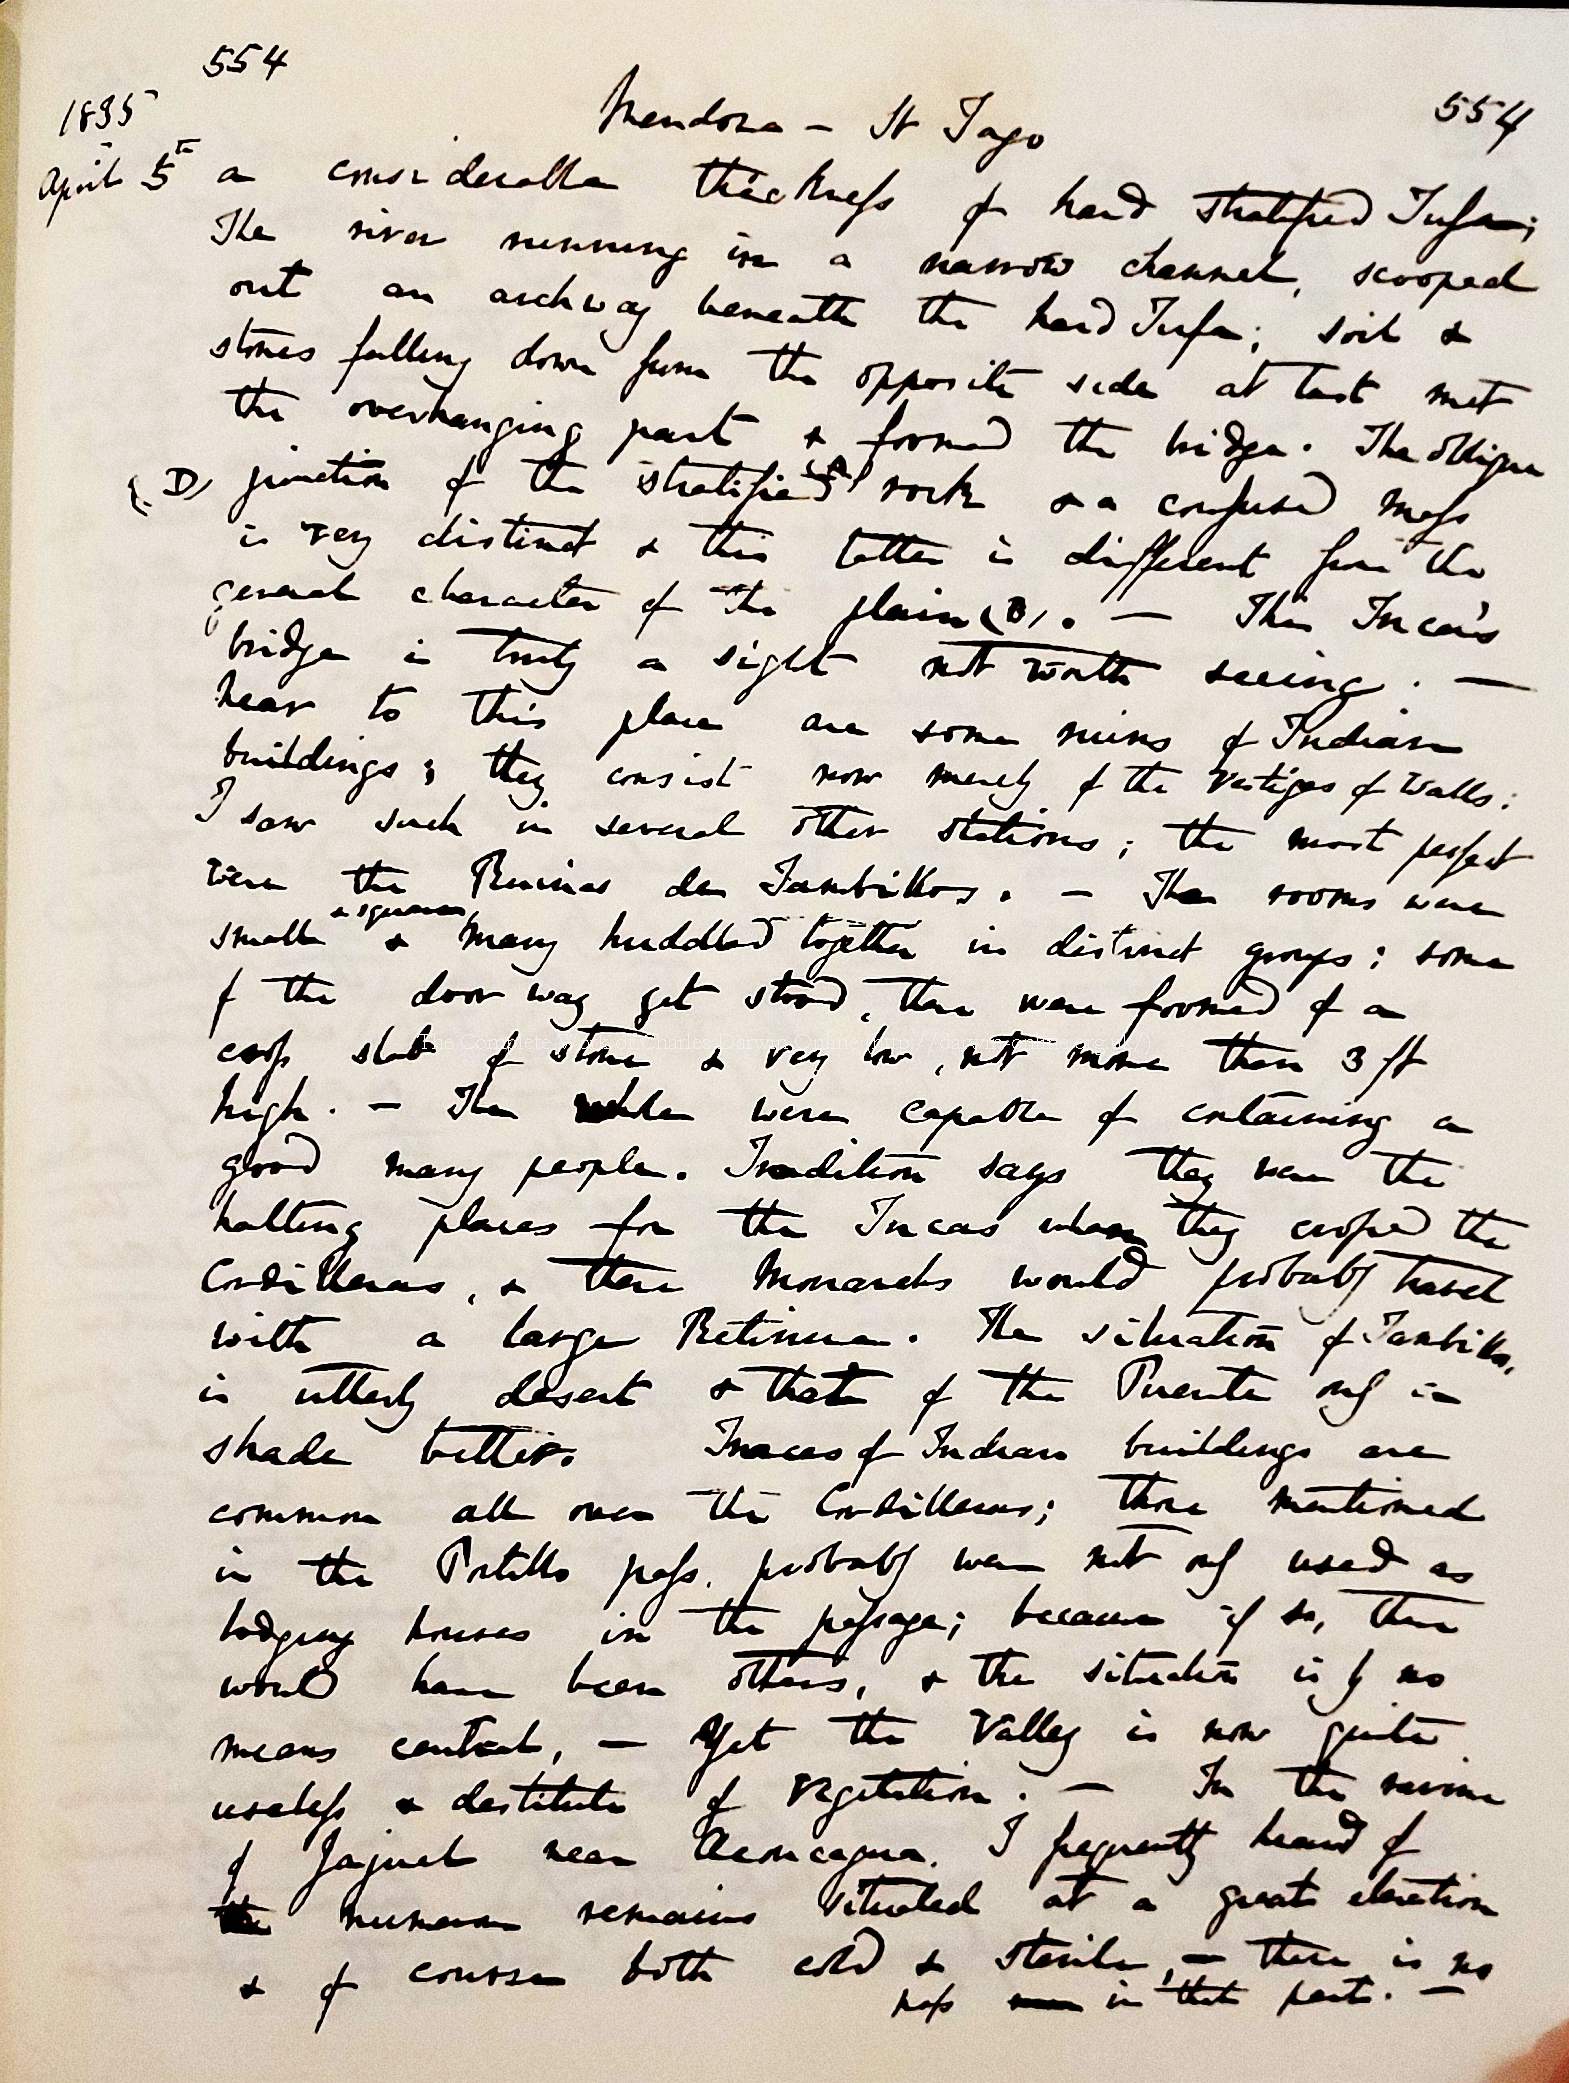 554
1835
Mendoza – St Jago
554
April 5th a considerable thickness of hard stratified Tufa;
The river running in a narrow channel, scooped
out an archway beneath the hard Tufa; soil &
stones falling down from the opposite side at last met
the overhanging part & formed the bridge. The oblique
(D) junction of the stratified rock & a confused mass
is very distinct & this latter is different from the
general character of the plain (B). — This Inca's
bridge is truly a sight not worth seeing. —
Near to this place are some ruins of Indian
buildings; they consist now merely of the vestiges of walls:
I saw such in several other stations; the most perfect
were the Ruinas de Tambillos. — The rooms were
small & square & many huddled together in distinct groups: some
of the door way yet stood, these were formed of a
cross slab of stone & very low, not more than 3 ft
high. — The whole were capable of containing a
good many people. Tradition says they were the
halting places for the Incas when they crossed the
Cordilleras, & these Monarchs would probably travel
with a large Retinue. The situation of Tambillos,
is utterly desert & that of the Puente only in
shade better. Traces of Indian buildings are
common all over the Cordilleras; those mentioned
in the Portillo pass. probably were not only used as
lodging houses in the passage; because if so, there
would have been others, & the situation is by no
means central, — Yet the valley is now quite
useless & destitute of vegetation. — In the ravine
of Jajuel near Aconcagua. I frequently heard of
numerous remains situated at a great elevation
& of course both cold & sterile, — there is no
pass in that part. —